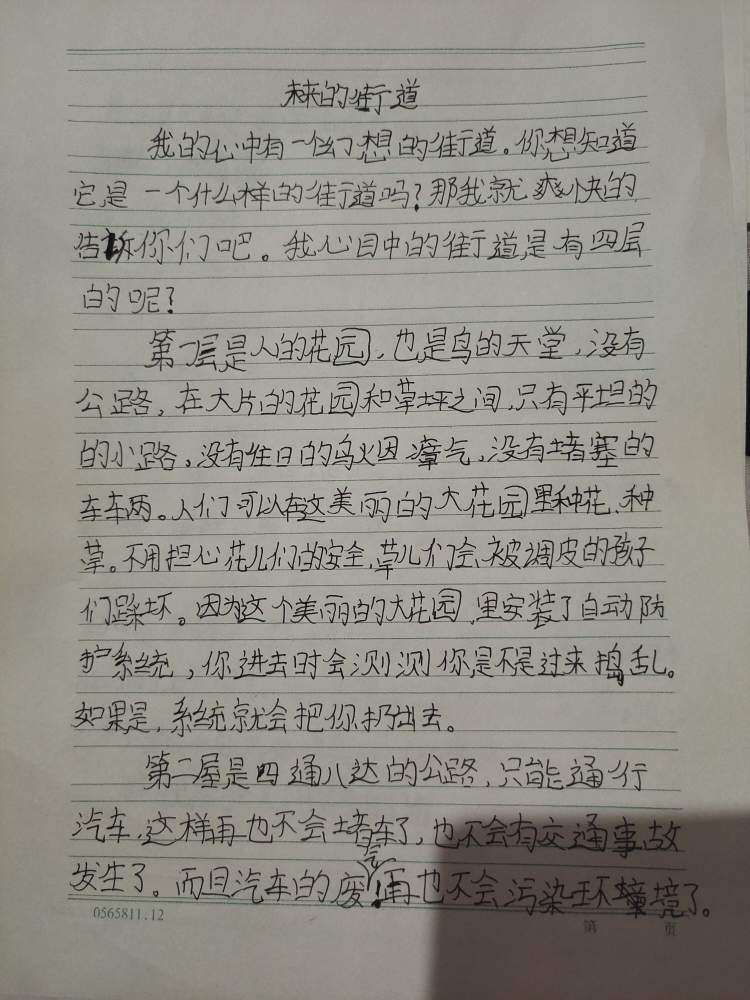 未来的街道
我的心中有一个幻想的街道。你想知道
它是一个什么样的街道吗？那我就爽快的
告诉你们吧。我心目中的街道是有四层
的呢？
第一层是人的花园，也是鸟的天堂，没有
公路，在大片的花园和草坪之间，只有平坦的
的小路。没有往日的乌火因瘴气，没有堵塞的
车车两。人们可以在这美丽的大花园里种花、种
草。不用担心花儿们的安全，草儿们会被调皮的孩子
们踩坏。因为这个美丽的大花园里安装了自动防
护系统，你进去时会测测你是不是过来捣乱。
如果是，系统就会把你扔出去。
第二屋是四通八达的公路，只能通行
汽车，这样再也不会堵车了，也不会有交通事故
发生了。而且汽车的废气再也不会污染环境了。
0565811.12
第 页